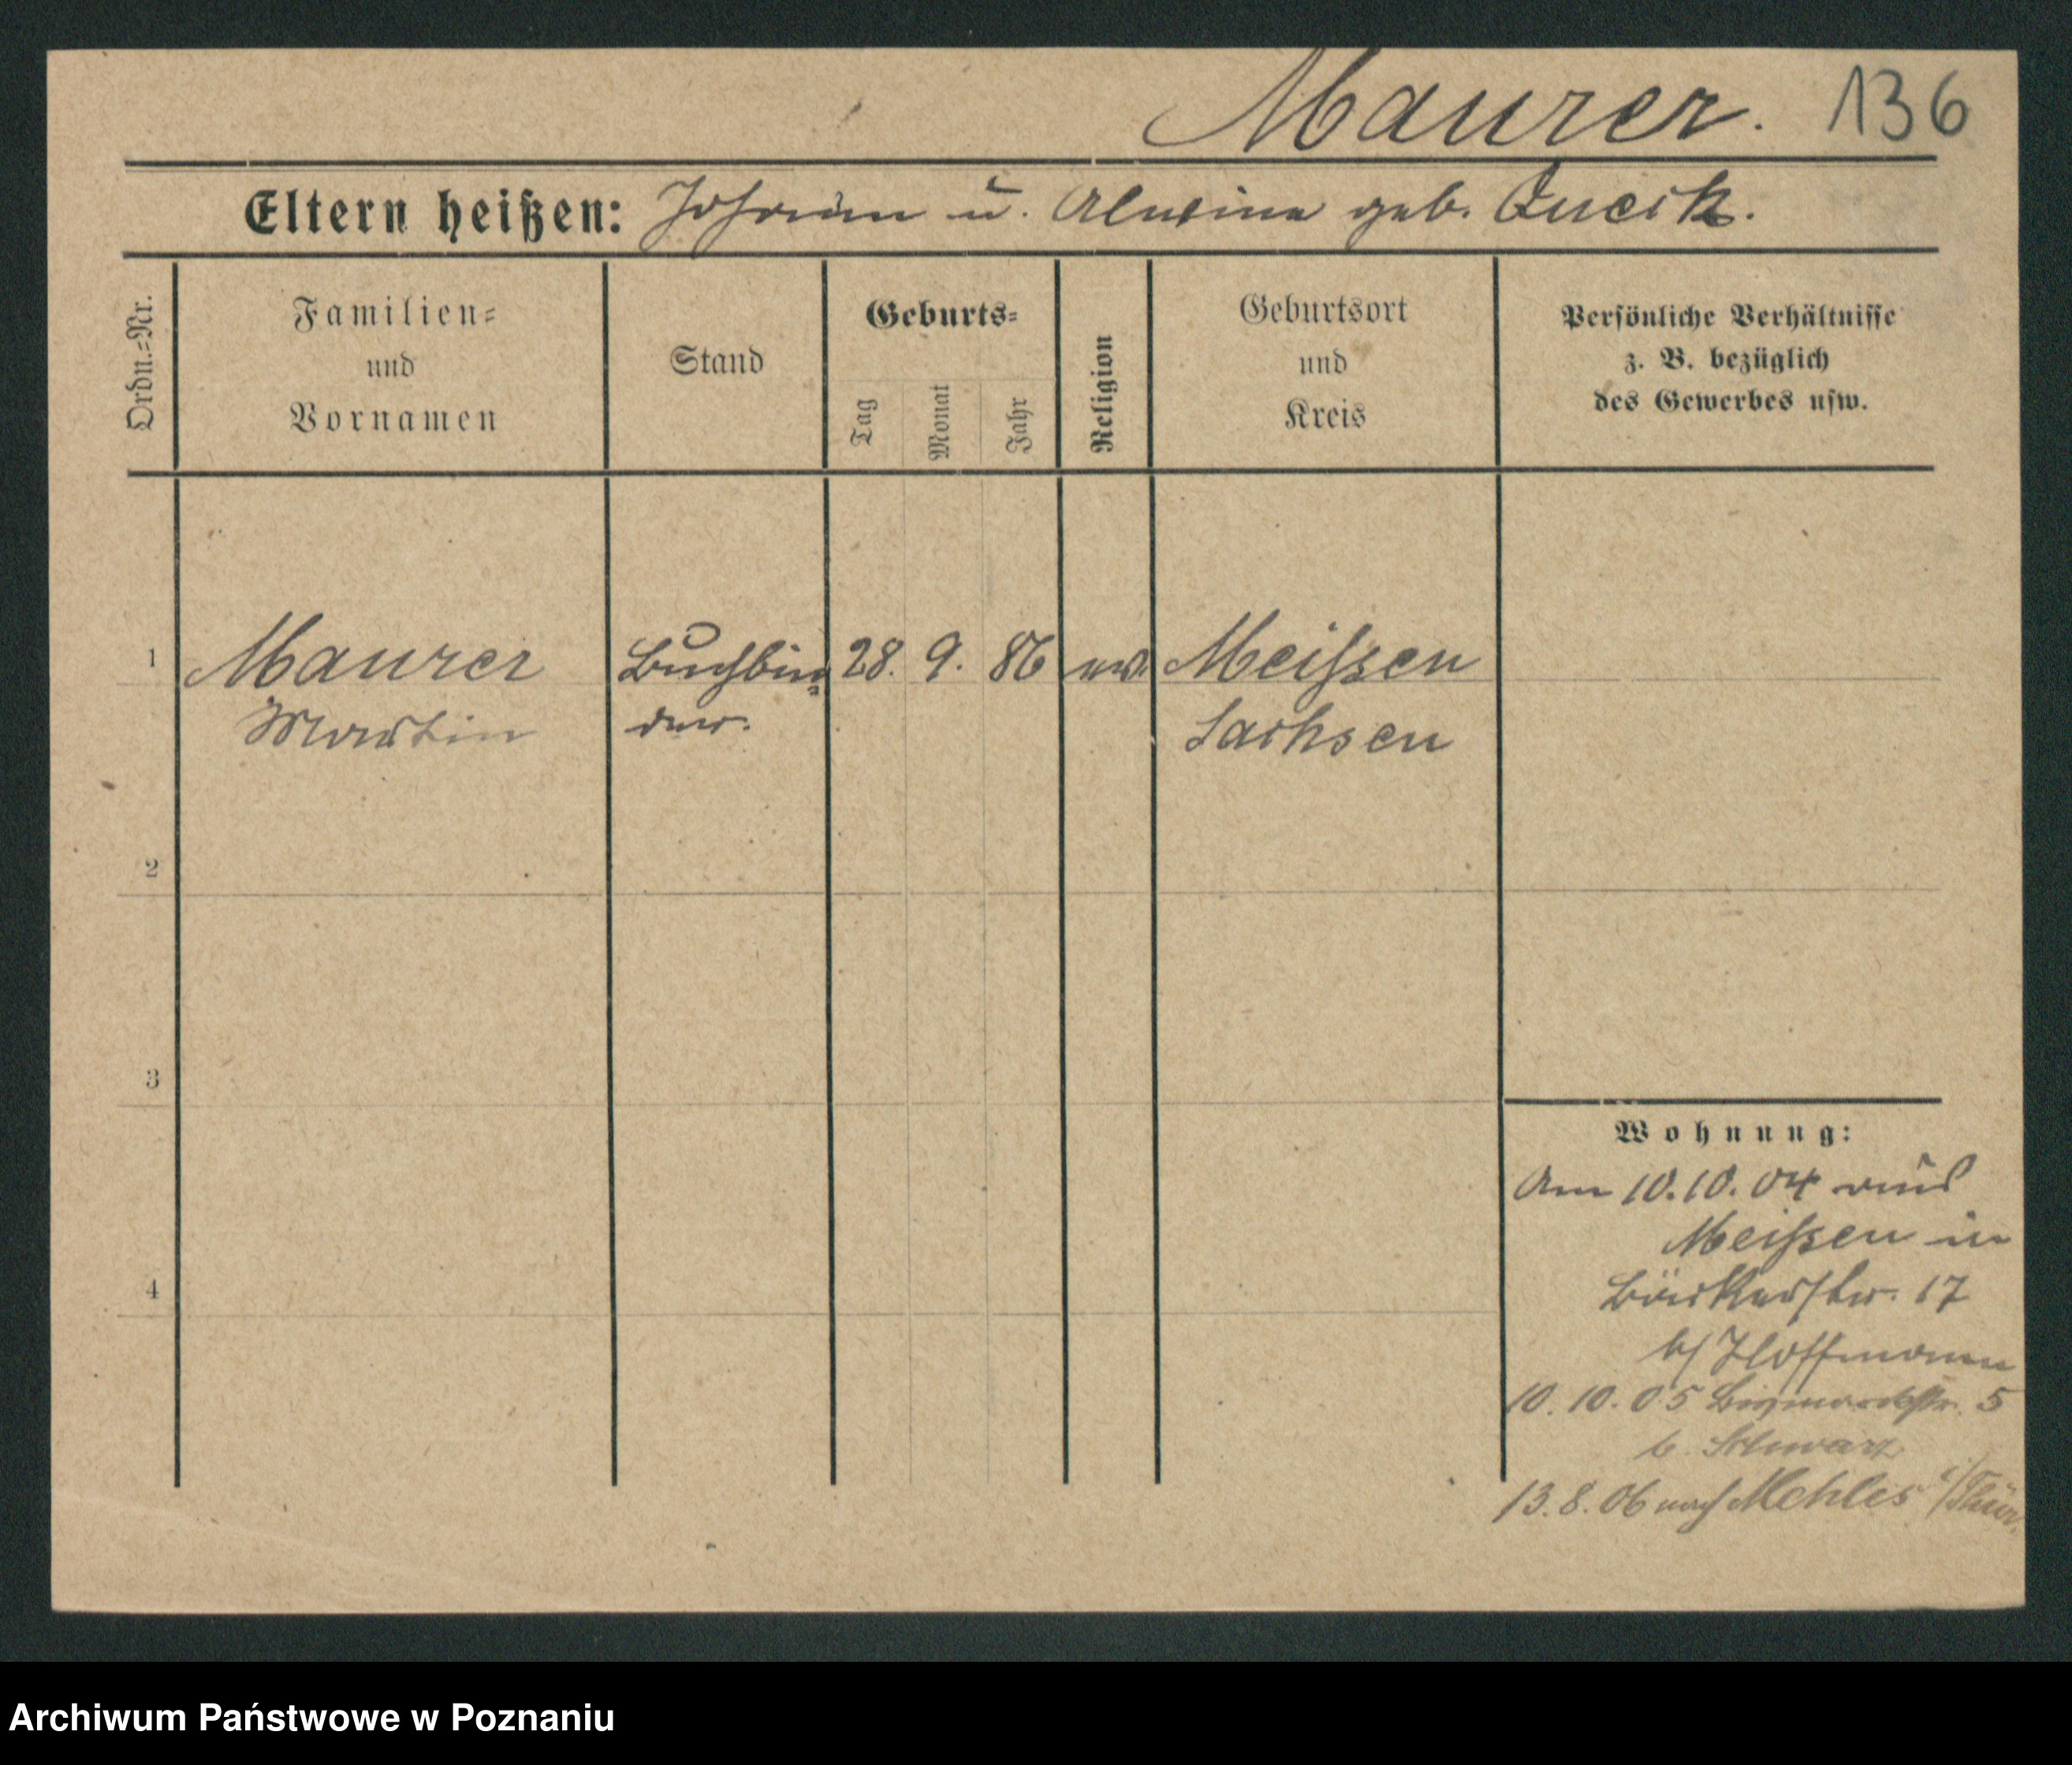 Maurer. 136
Eltern heißen: Johann u. Alwine geb. Queck.
Ordn.=Nr.
Familien=
und
Vornamen
Stand
Geburts=
Tag
Monat
Jahr
Religion
Geburtsort
und
Kreis
Persönliche Verhältnisse
z. B. bezüglich
des Gewerbes usw.
1 Maurer Buchbin= 28. 9. 86 ev. Meißen
Martin der. Sachsen
2
3
4
Wohnung:
Am 10.10.04 aus
Meißen in
Bäckerstr. 17
b/ Hoffmann
10.10.05 Bismarckstr. 5
b. Schwarz
13.8.06 nach Mehles i/Thür.
Archiwum Państwowe w Poznaniu